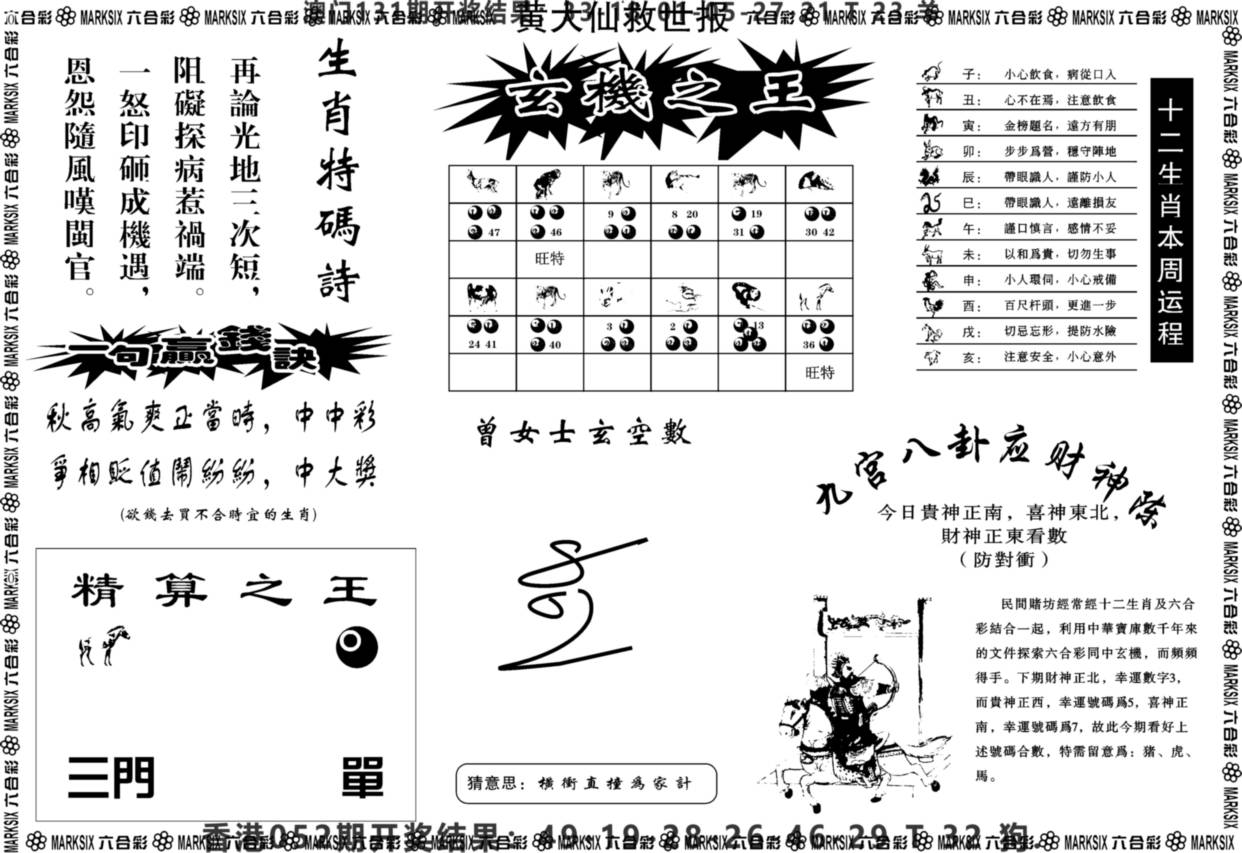 黄大仙救世报
生肖特碼詩
再論光地三次短，
阻礙探病惹禍端。
一怒印砸成機遇，
恩怨隨風嘆閩官。
一句贏錢訣
秋高氣爽正當時，中中彩
爭相貶值鬧紛紛，中大獎
(欲錢去買不合時宜的生肖)
精算之王
三門
單
玄機之王
47 46 9 8 20 19 31 30 42
旺特
24 41 40 3 2 13 36
旺特
曾女士玄空數
猜意思：橫衝直撞為家計
十二生肖本周运程
子：小心飲食，病從口入
丑：心不在焉，注意飲食
寅：金榜題名，遠方有朋
卯：步步爲營，穩守陣地
辰：帶眼識人，謹防小人
巳：帶眼識人，遠離損友
午：謹口慎言，感情不妥
未：以和爲貴，切勿生事
申：小人環伺，小心戒備
酉：百尺杆頭，更進一步
戌：切忌忘形，提防水險
亥：注意安全，小心意外
九宮八卦应财神
今日貴神正南，喜神東北，
財神正東看數
（防對衝）
民間賭坊經常經十二生肖及六合
彩結合一起，利用中華寶庫數千年來
的文件探索六合彩同中玄機，而頻頻
得手。下期財神正北，幸運數字3，
而貴神正西，幸運號碼爲5，喜神正
南，幸運號碼爲7，故此今期看好上
述號碼合數，特需留意爲：豬、虎、
馬。
香港052期开奖结果：49 19 38 26 46 29 T 32 狗
MARKSIX 六合彩